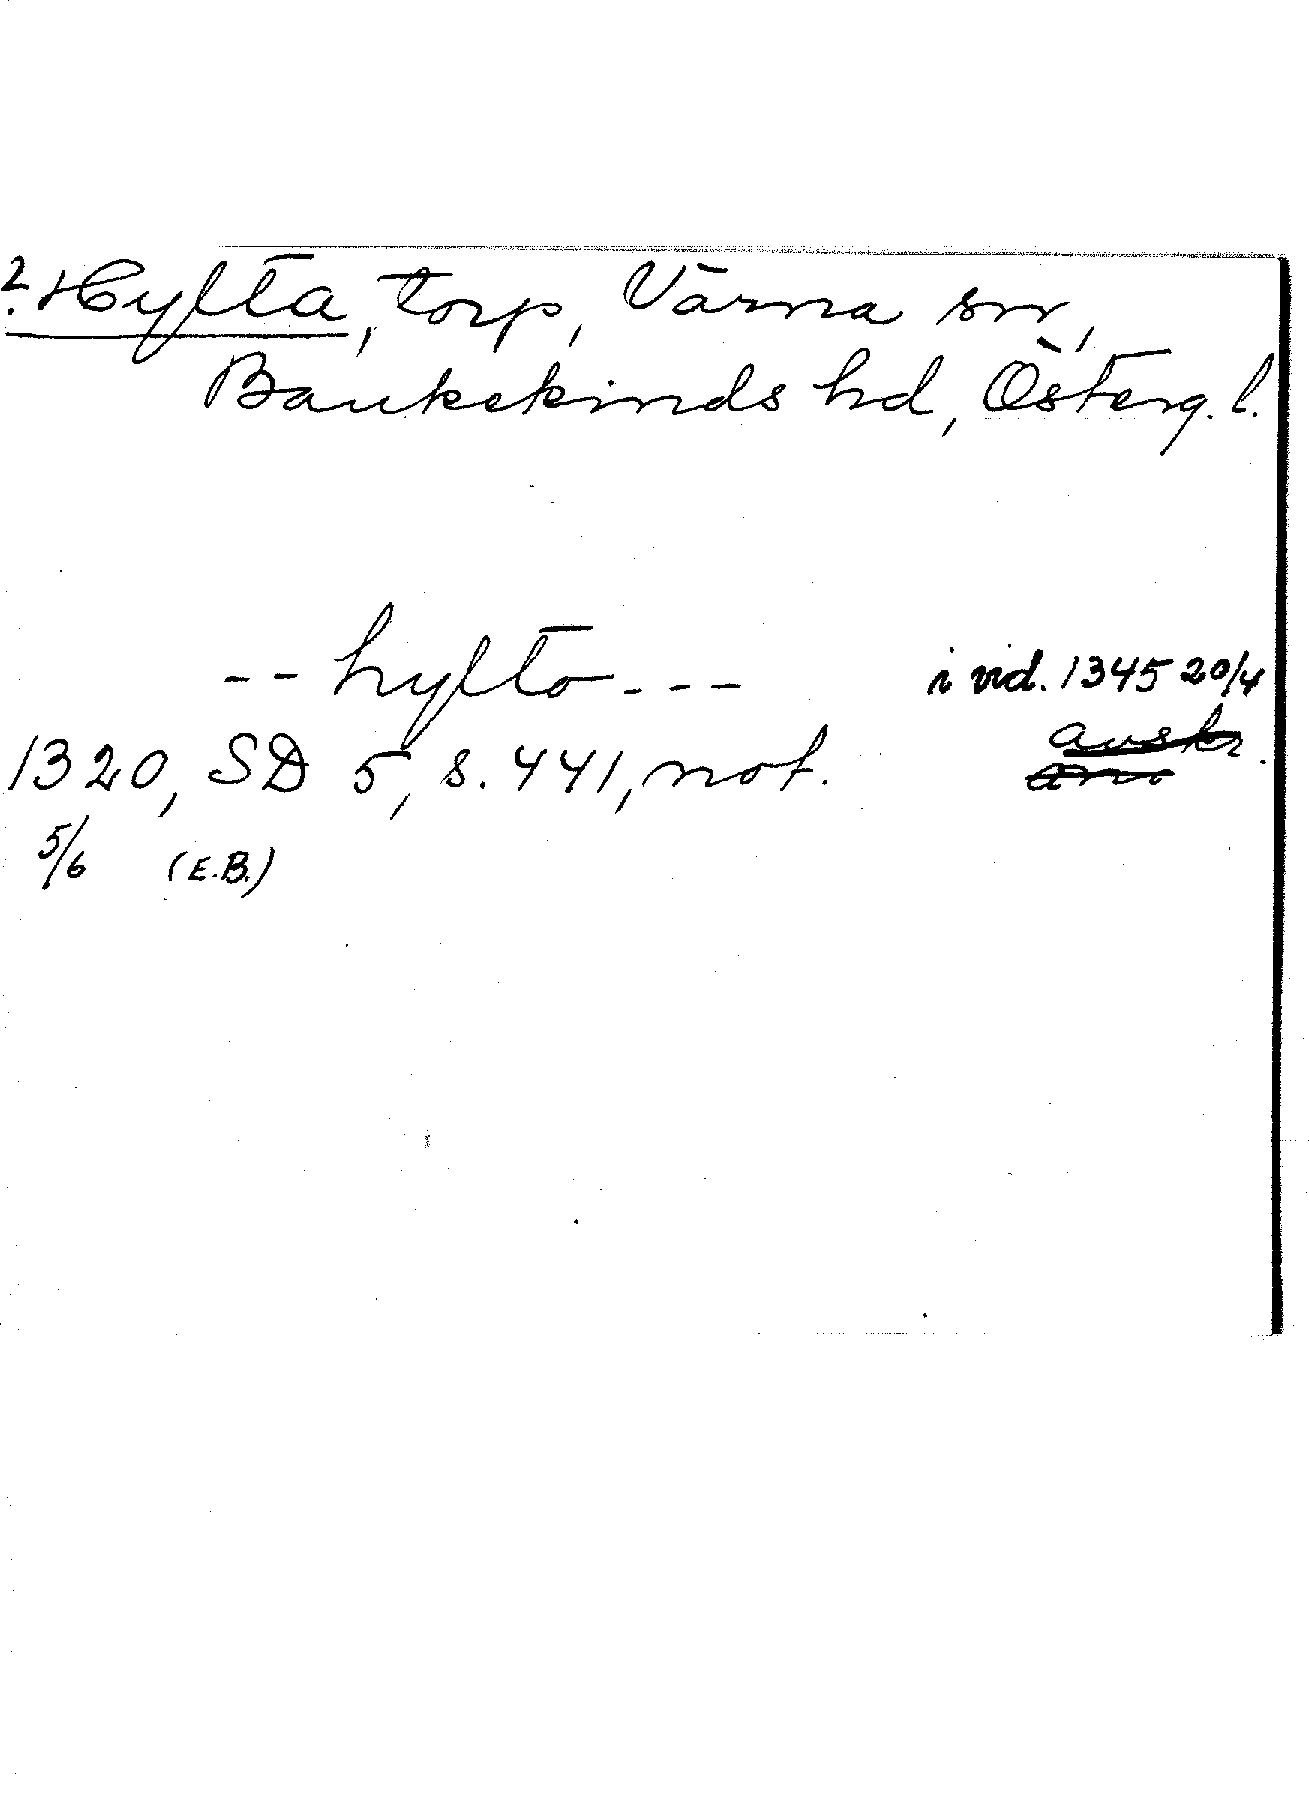 ?. Hylta, torp, Värna sn,
Bankekinds hd, Österg. l.
-- hylto --- i vid. 1345 20/4
avskr.
1320, SD 5, s. 441, not.
5/6 (E.B.)